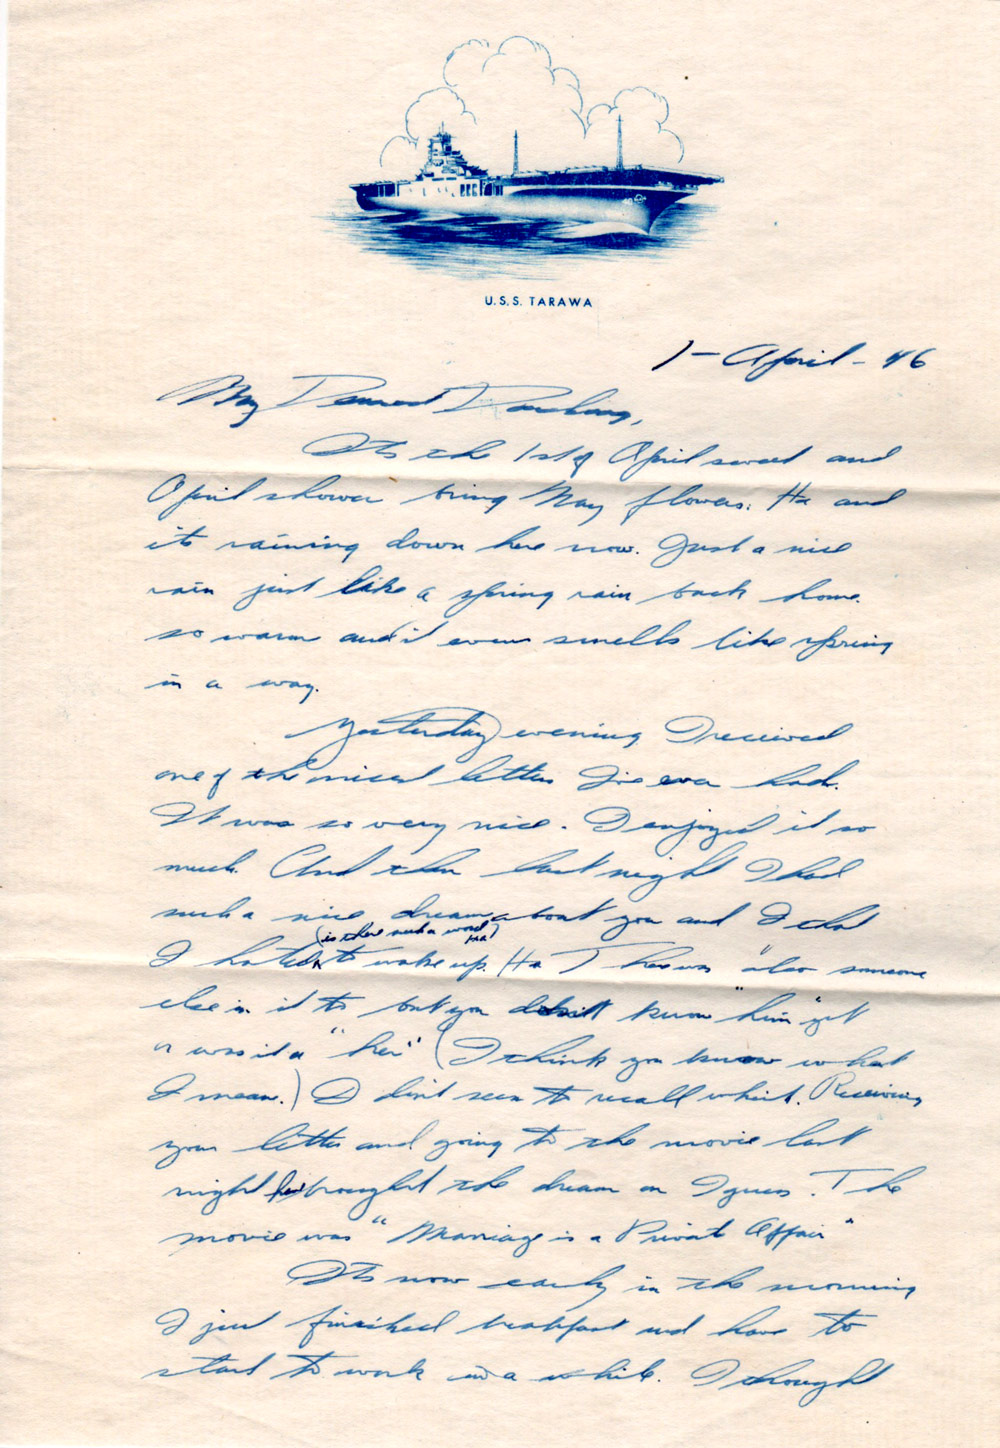 40
U.S.S. TARAWA
1 - April - 46
My Dearest Darling,
Its the 1st of April sweet and
April shower bring May flowers. Ha and
its raining down here now. Just a nice
rain just like a spring rain back home.
so warm and it even smells like spring
in a way.
Yesterday evening I received
one of the nicest letters I've ever had.
It was so very nice. I enjoyed it so
much. And then last night I had
such a nice dream about you and I that
(is there such a word Ha)
I hated to wake up. Ha There was also someone
else in it to but you don't know "him" yet
or was it a "her" (I think you know what
I mean.) I don't seem to recall which. Receiving
your letter and going to the movie last
night brought the dream on I guess. The
movie was "Marriage is a Private Affair"
Its now early in the morning
I just finished breakfast and have to
start to work in a while. I thought